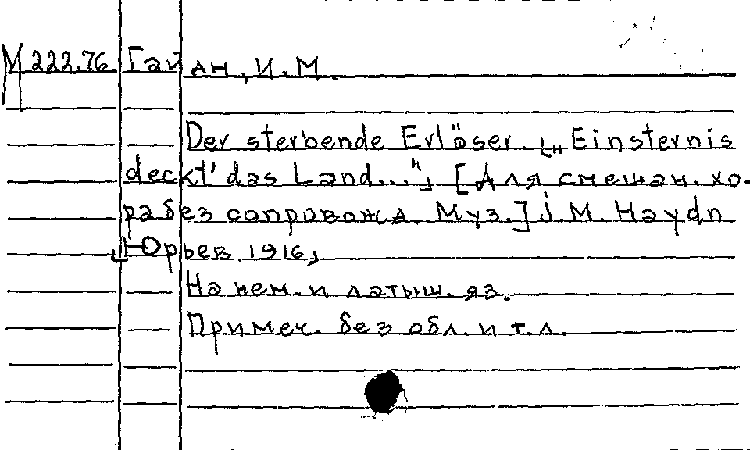 М 222.76 Гайдн, И.М.
Der sterbende Erlöser. „Einsternis
deckt' das Land..." [Для смешан. хо-
ра без сопровожд. Муз.] j M. Haydn
Юрьев. 1916,
На нем. и латыш. яз.
Примеч. без обл. и т.л.